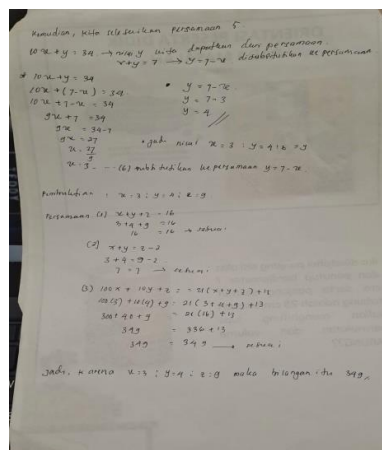 Kemudian, kita selesaikan persamaan 5.
10x + y = 34 → nilai y kita dapatkan dari persamaan
x+y = 7 → y = 7-x disubstitusikan ke persamaan
* 10x + y = 34
10x + (7-x) = 34
10x + 7-x = 34
9x + 7 = 34
9x = 34-7
9x = 27
x = 27/9
x = 3 ... (6) substitusikan ke persamaan y = 7-x
• y = 7-x
y = 7-3
y = 4 //
• Jadi nilai x = 3 ; y = 4 ; z = 9
Pembuktian : x = 3 ; y = 4 ; z = 9
Persamaan (1) x+y+z = 16
3+4+9 = 16
16 = 16 → sesuai.
(2) x+y = z-2
3+4 = 9-2
7 = 7 → sesuai.
(3) 100x + 10y + z = 21(x+y+z) + 13
100(3) + 10(4) + 9 = 21(3+4+9) + 13
300 + 40 + 9 = 21(16) + 13
349 = 336 + 13
349 = 349 → sesuai
Jadi, karena x = 3 ; y = 4 ; z = 9 maka bilangan itu 349,